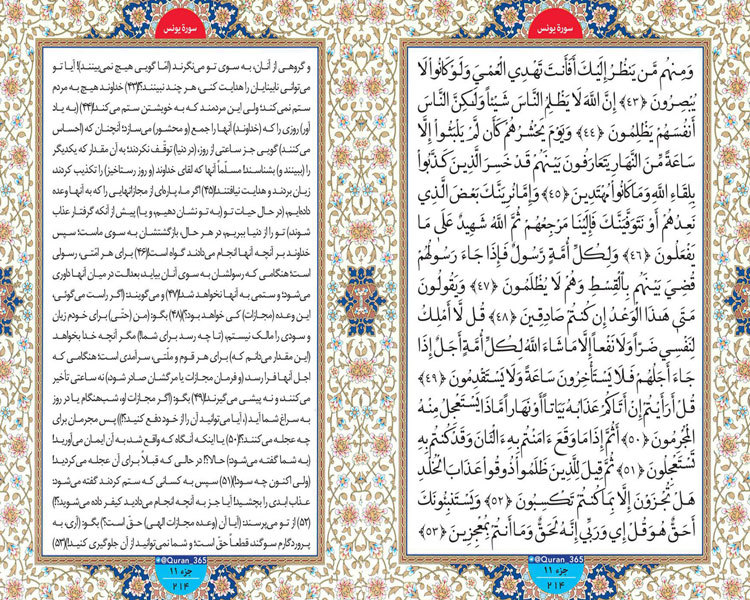 سورة یونس
وَمِنْهُم مَّن يَنظُرُ إِلَيْكَ أَفَأَنتَ تَهْدِي الْعُمْيَ وَلَوْ كَانُوا لَا
يُبْصِرُونَ ﴿۴۳﴾ إِنَّ اللَّهَ لَا يَظْلِمُ النَّاسَ شَيْئًا وَلَٰكِنَّ النَّاسَ
أَنفُسَهُمْ يَظْلِمُونَ ﴿۴۴﴾ وَيَوْمَ يَحْشُرُهُمْ كَأَن لَّمْ يَلْبَثُوا إِلَّا
سَاعَةً مِّنَ النَّهَارِ يَتَعَارَفُونَ بَيْنَهُمْ قَدْ خَسِرَ الَّذِينَ كَذَّبُوا
بِلِقَاءِ اللَّهِ وَمَا كَانُوا مُهْتَدِينَ ﴿۴۵﴾ وَإِمَّا نُرِيَنَّكَ بَعْضَ الَّذِي
نَعِدُهُمْ أَوْ نَتَوَفَّيَنَّكَ فَإِلَيْنَا مَرْجِعُهُمْ ثُمَّ اللَّهُ شَهِيدٌ عَلَىٰ مَا
يَفْعَلُونَ ﴿۴۶﴾ وَلِكُلِّ أُمَّةٍ رَّسُولٌ فَإِذَا جَاءَ رَسُولُهُمْ
قُضِيَ بَيْنَهُم بِالْقِسْطِ وَهُمْ لَا يُظْلَمُونَ ﴿۴۷﴾ وَيَقُولُونَ
مَتَىٰ هَٰذَا الْوَعْدُ إِن كُنتُمْ صَادِقِينَ ﴿۴۸﴾ قُل لَّا أَمْلِكُ
لِنَفْسِي ضَرًّا وَلَا نَفْعًا إِلَّا مَا شَاءَ اللَّهُ لِكُلِّ أُمَّةٍ أَجَلٌ إِذَا
جَاءَ أَجَلُهُمْ فَلَا يَسْتَأْخِرُونَ سَاعَةً وَلَا يَسْتَقْدِمُونَ ﴿۴۹﴾
قُلْ أَرَأَيْتُمْ إِنْ أَتَاكُمْ عَذَابُهُ بَيَاتًا أَوْ نَهَارًا مَّاذَا يَسْتَعْجِلُ مِنْهُ
الْمُجْرِمُونَ ﴿۵۰﴾ أَثُمَّ إِذَا مَا وَقَعَ ءَامَنتُم بِهِ ءَالْآنَ وَقَدْ كُنتُم بِهِ
تَسْتَعْجِلُونَ ﴿۵۱﴾ ثُمَّ قِيلَ لِلَّذِينَ ظَلَمُوا ذُوقُوا عَذَابَ الْخُلْدِ
هَلْ تُجْزَوْنَ إِلَّا بِمَا كُنتُمْ تَكْسِبُونَ ﴿۵۲﴾ وَيَسْتَنبِئُونَكَ
أَحَقٌّ هُوَ قُلْ إِي وَرَبِّي إِنَّهُ لَحَقٌّ وَمَا أَنتُم بِمُعْجِزِينَ ﴿۵۳﴾
@Quran_365
جزء ۱۱
۲۱۴
سورة یونس
و گروهی از آنان، به سوی تو می‌نگرند (امّا گویی هیچ نمی‌بینند)! آیا تو
می‌توانی نابینایان را هدایت کنی، هر چند نبینند؟!(۴۳) خداوند هیچ به مردم
ستم نمی‌کند؛ ولی این مردمند که به خویشتن ستم می‌کنند!(۴۴) (به یاد
آور) روزی را که (خداوند) آنها را جمع (و محشور) می‌سازد؛ آنچنان که (احساس
می‌کنند) گویی جز ساعتی از روز، (در دنیا) توقّف نکردند؛ به آن مقدار که یکدیگر
را (ببینند و) بشناسند! مسلّماً آنها که لقای خداوند (و روز رستاخیز) را تکذیب کردند،
زیان بردند و هدایت نیافتند!(۴۵) اگر ما، پاره‌ای از مجازاتهایی را که به آنها وعده
داده‌ایم، (در حال حیات تو) به تو نشان دهیم، و یا (پیش از آنکه گرفتار عذاب
شوند،) تو را از دنیا ببریم، در هر حال، بازگشتشان به سوی ماست؛ سپس
خداوند بر آنچه آنها انجام می‌دادند گواه است!(۴۶) برای هر امّتی، رسولی
است؛ هنگامی که رسولشان به سوی آنان بیاید، بعدالت در میان آنها داوری
می‌شود؛ و ستمی به آنها نخواهد شد!(۴۷) و می‌گویند: «اگر راست می‌گوئی،
این وعده (مجازات) کی خواهد بود؟»(۴۸) بگو: «من (حتّی) برای خودم زیان
و سودی را مالک نیستم، (تا چه رسد برای شما!) مگر آنچه خدا بخواهد.
(این مقدار می‌دانم که) برای هر قوم و ملّتی، سرآمدی است؛ هنگامی که
اجل آنها فرا رسد، (و فرمان مجازات یا مرگشان صادر شود،) نه ساعتی تأخیر
می‌کنند، و نه پیشی می‌گیرند!(۴۹) بگو: «اگر مجازات او، شب‌هنگام یا در روز
به سراغ شما آید (، آیا می‌توانید آن را از خود دفع کنید؟!)» پس مجرمان برای
چه عجله می‌کنند؟!(۵۰) یا اینکه آنگاه که واقع شد، به آن ایمان می‌آورید!
(به شما گفته می‌شود:) حالا؟! در حالی که قبلاً برای آن عجله می‌کردید!
(ولی اکنون چه سود!)(۵۱) سپس به کسانی که ستم کردند گفته می‌شود:
عذاب ابدی را بچشید! آیا جز به آنچه انجام می‌دادید کیفر داده می‌شوید؟!
(۵۲) از تو می‌پرسند: «آیا آن (وعده مجازات الهی) حقّ است؟» بگو: «آری، به
پروردگارم سوگند قطعاً حقّ است؛ و شما نمی‌توانید از آن جلوگیری کنید!»(۵۳)
@Quran_365
جزء ۱۱
۲۱۴